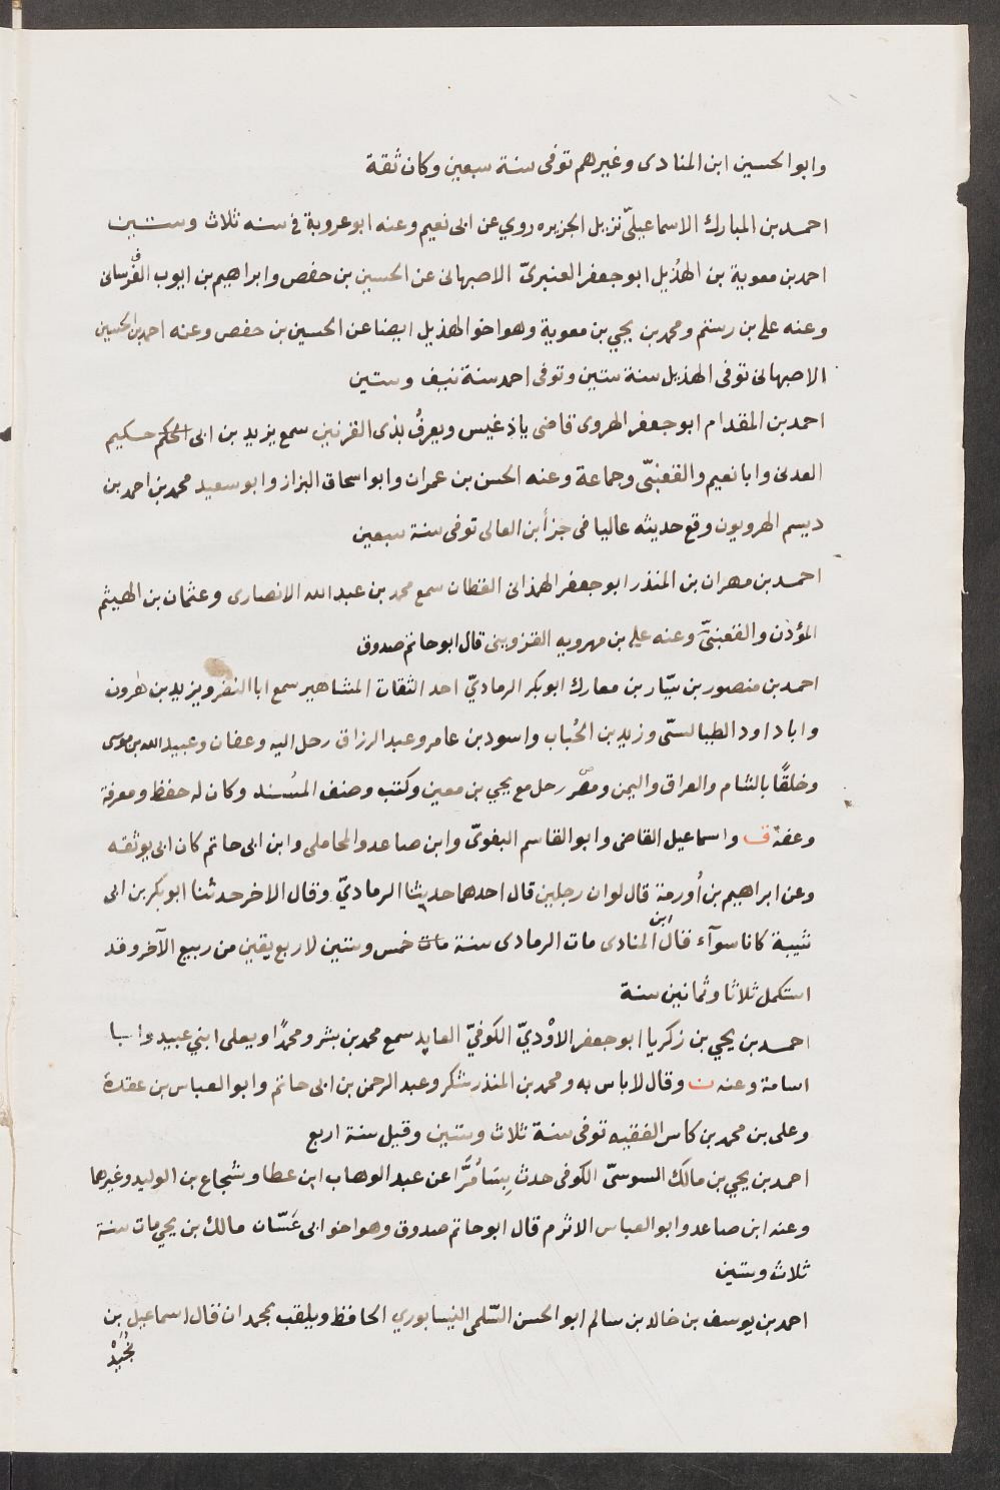 وابو الحسين ابن المنادى وغيرهم توفى سنة سبعين وكان ثقة
احمد بن المبارك الاسماعيلىّ نزيل الجزيره روي عن ابى نعيم وعنه ابو عروبة فى سنه ثلاث وستين
احمد بن معوية بن الهُذيل ابو جعفر العنبرىّ الاصبهانى عن الحسين بن حفص وابراهيم بن ايوب الفرسانى
وعنه على بن رستم ومحمد بن يحيى بن معوية وهو اخو الهذيل ايضا عن الحسين بن حفص وعنه احمد بن الحسين
الاصبهانى توفى الهذيل سنة ستين وتوفى احمد سنة نيف وستين
احمد بن المقدام ابو جعفر الهروى قاضى باذغيس ويعرفُ بذى القرنين سمع يزيد بن ابى الحكم حكيم
العدنى وابا نعيم والقعنبّى وجماعة وعنه الحسن بن عمران وابو اسحاق البزاز وابو سعيد محمد بن احمد بن
ديسم الهرويون وقع حديثه عاليا فى جزأ بن العالى توفى سنة سبعين
احمد بن مهران بن المنذر ابو جعفر الهمذانى القطان سمع محمد بن عبد الله الانصارى وعثمان بن الهيثم
المؤذن والقعنبىّ وعنه على بن مهرويه القزوينى قال ابو حاتم صدوق
احمد بن منصور بن سيّار بن معارك ابو بكر الرمادىّ احد الثقات المشاهير سمع ابا النضر ويزيد بن هرون
وابا داود الطيالسىّ وزيد بن الحُباب واسود بن عامر وعبد الرزاق رحل اليه وعفان وعبيد الله بن موسى
وخلقًا بالشام والعراق واليمن ومصر رحل مع يحيى بن معين وكتب وصنف المُسند وكان له حفظ ومعرفة
وعنه ق واسماعيل القاضى وابو القاسم البغوىّ وابن صاعد والمحاملى وابن ابى حاتم كان ابى يوثقه
وعن ابراهيم بن اُورمة قال لو ان رجلين قال احدهما حديثنا الرمادىّ وقال الاخر حدثنا ابو بكر بن ابى
شيبة كانا سوآء قال ابن المنادى مات الرمادى سنة مات خمس وستين لاربع يقين من ربيع الآخر وقد
استكمل ثلاثا وثمانين سنة
احمد بن يحيى بن زكريا ابو جعفر الاوْدىّ الكوفىّ العابد سمع محمد بن بشر ومحمدًا ويعلى ابني عبيد وابا
اسامة وعنه ن وقال لا باس به ومحمد بن المنذر شكر وعبد الرحمن بن ابى حاتم وابو العباس بن عقدة
وعلى بن محمد بن كاس الفقيه توفى سنة ثلاث وستين وقيل سنة اربع
احمد بن يحيى بن مالك السوسىّ الكوفى حدث بِسَامُرَّا عن عبد الوهاب ابن عطا وشجاع بن الوليد وغيرهما
وعنه ابن صاعد وابو العباس الاثرم قال ابو حاتم صدوق وهو اخو ابى غَسّان مالك بن يحيى مات سنة
ثلاث وستين
احمد بن يوسف بن خالد بن سالم ابو الحسن السّلمى النيسابوري الحافظ ويلقب بحمدان قال اسماعيل بن
نُجَيْدْ